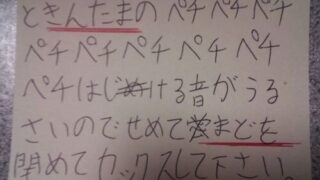 ときんたまの ペチペチペチ
ペチペチペチペチペチ
ペチはじける音がうる
さいのでせめてまどを
閉めてカックスして下さい。